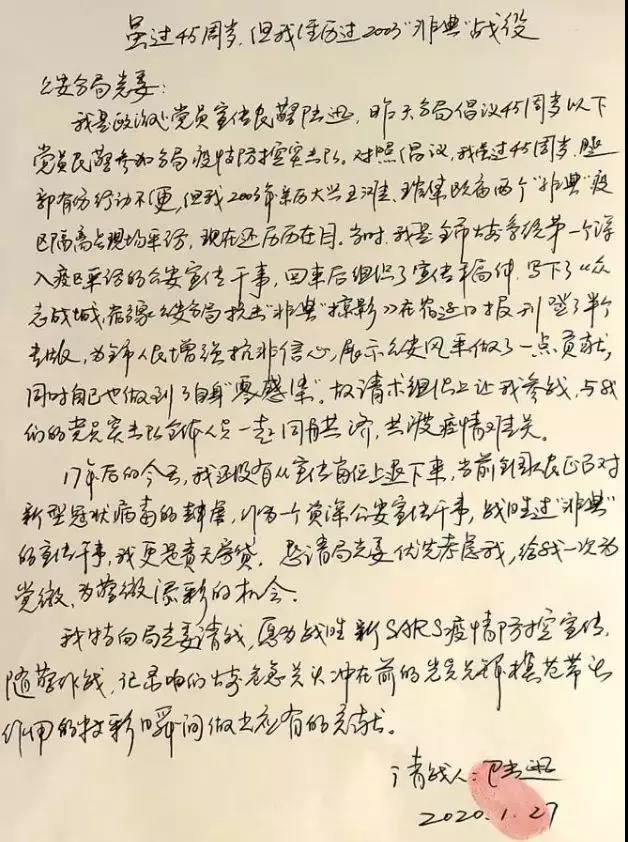 虽过45周岁,但我经历过2003"非典"战役
公安分局党委:
我是政治处党员宣传民警陆迅,昨天分局倡议45周岁以下
党员民警参加分局疫情防控突击队。对照倡议,我虽过45周岁,腿
部有伤行动不便,但我2003年亲历大兴王滩、瑞集欧庙两个"非典"疫
区隔离点现场采访,现在还历历在目。当时,我是全市公安系统第一个深
入疫区采访的公安宣传干事,回来后组织了宣传稿件,写下了《众
志成城,宿豫公安分局抗击"非典"掠影》在宿迁日报刊登了半个
专版,为全市人民增强抗非信心,展示公安风采做了一点贡献,
同时自己也做到了自身"零感染"。故请求组织上让我参战,与我
们的党员突击队全体人员一起同舟共济,共渡疫情难关。
17年后的今天,我还没有从宣传岗位上退下来,当前全国人民正面对
新型冠状病毒的肆虐,作为一个资深公安宣传干事,战胜过"非典"
的宣传干事,我更是责无旁贷。恳请局党委优先考虑我,给我一次为
党徽、为警徽添彩的机会。
我特向局党委请战,愿为战胜新SARS疫情防控宣传,
随警作战,记录咱们公安危急关头冲在前的党员先锋模范带头
作用的精彩瞬间做出应有的贡献。
请战人:陆迅
2020.1.27